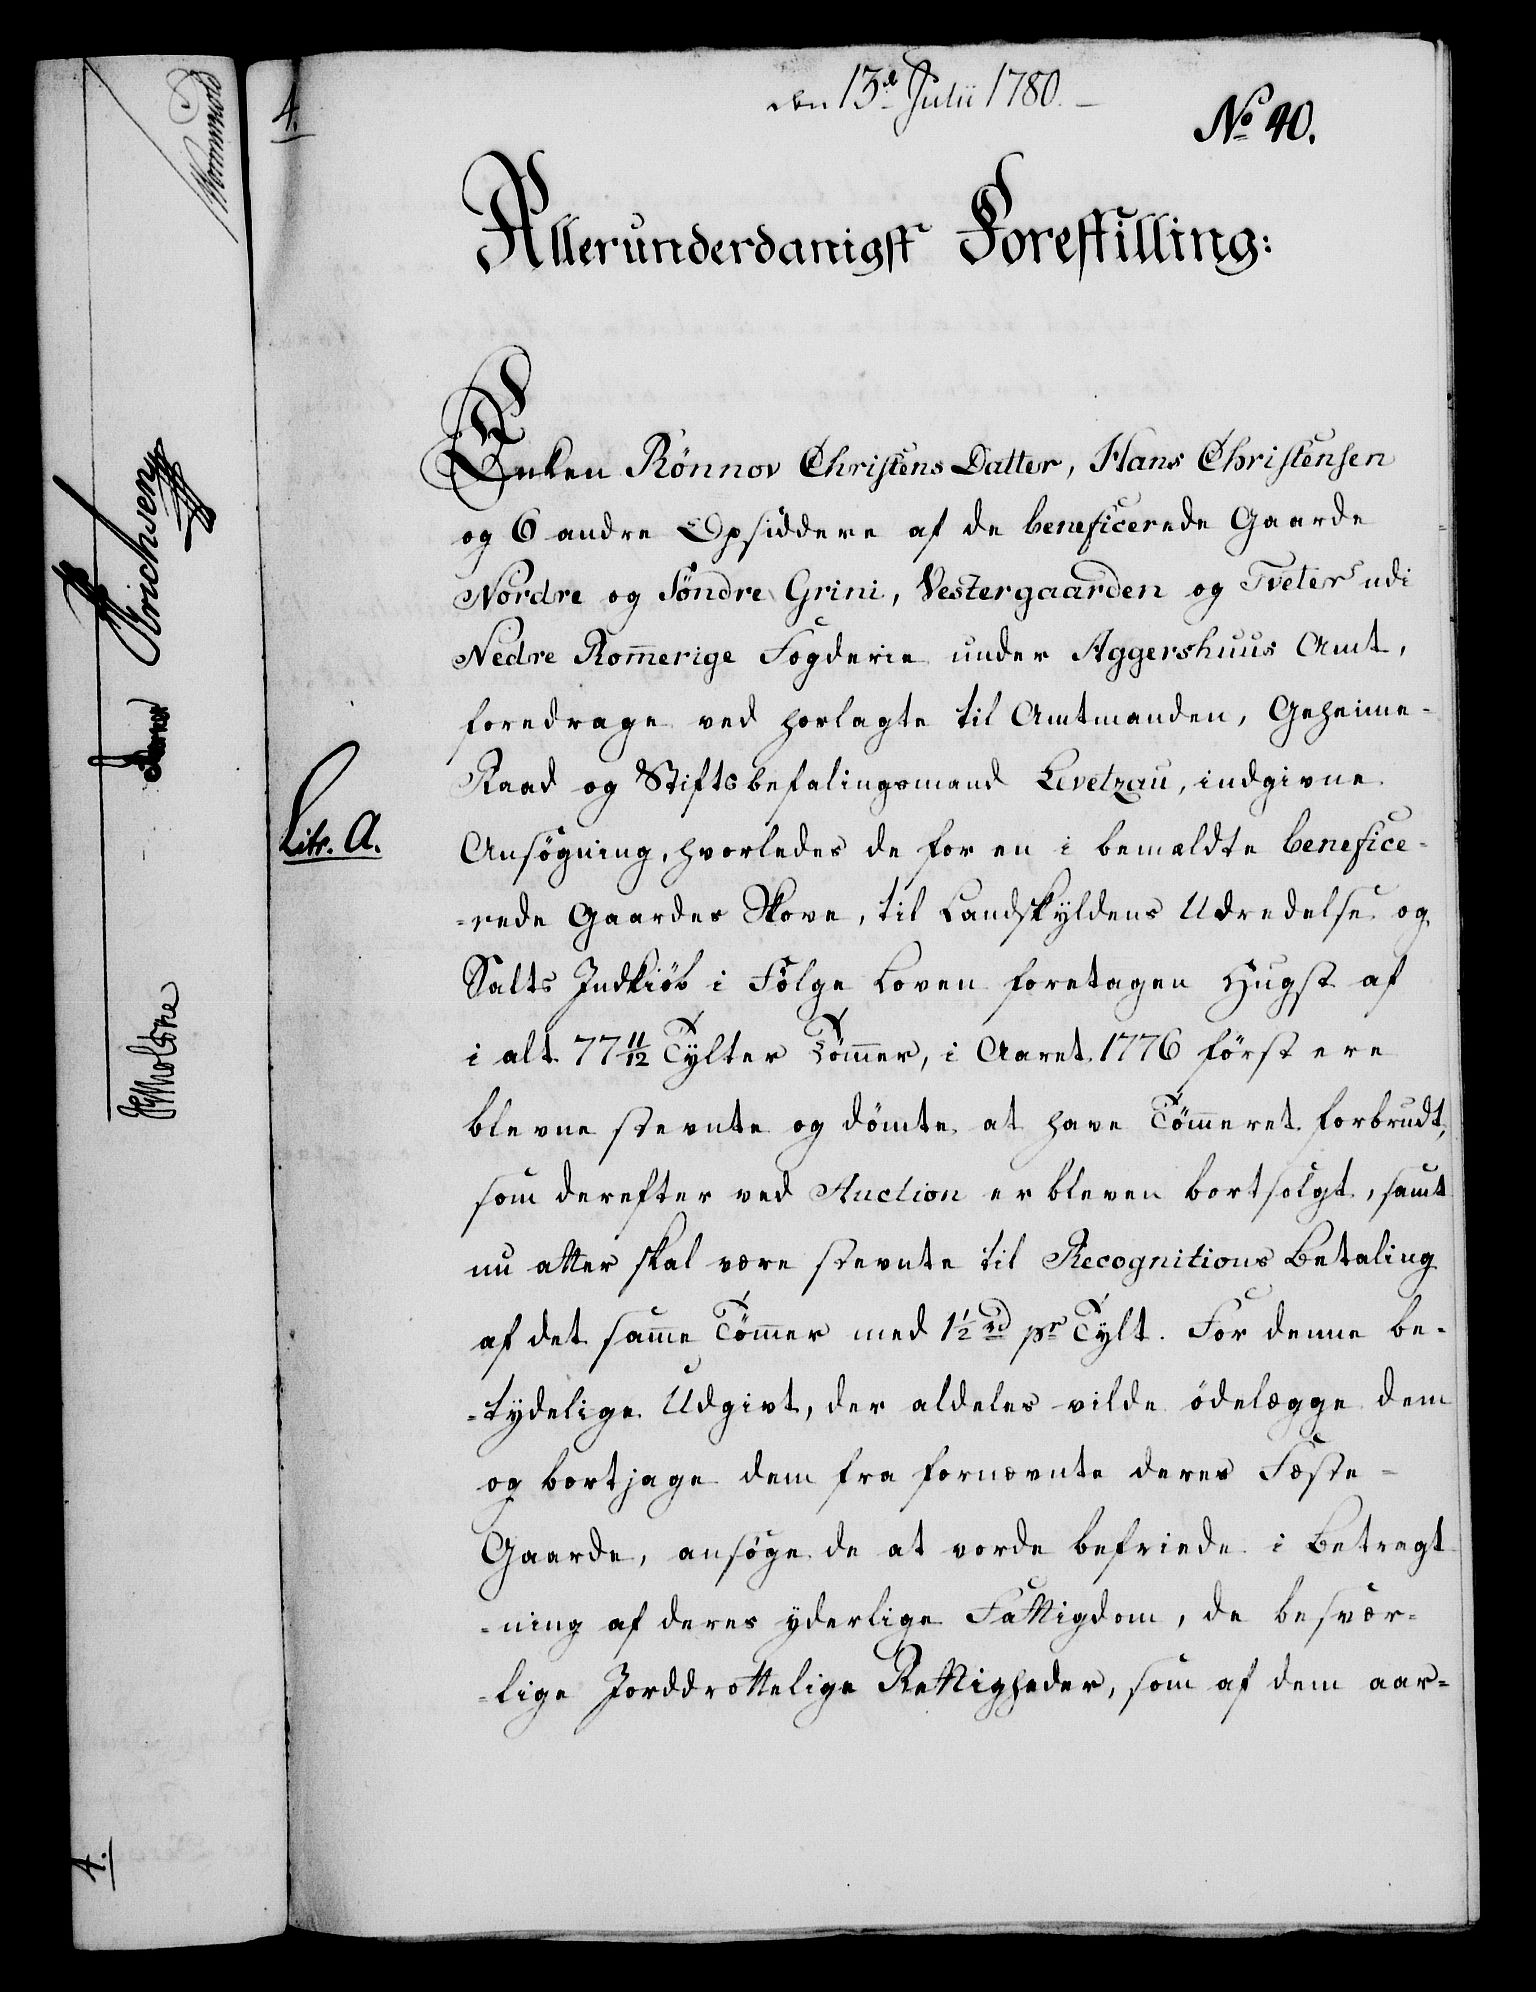 den 13de Julii 1780.
No 40.
4.
Allerunderdanigst Forestilling:
Enken Rönnov Christens Datter, Hans Christensen
og 6 andre Opsiddere af de beneficerede Gaarde
Nordre og Söndre Grini, Vestergaarden og Tveter udi
Nedre Rom̄erige Fogderie under Aggershuus Amt,
foredrage ved hoslagte til Amtmanden, Geheime-
Raad og Stiftsbefalingsmand Levetzau, indgivne
Litr. A.
Ansögning, hvorledes de for en i bemældte benefice-
-rede Gaardes Skove, til Landskyldens Udredelse og
Salts Indkiöb i Fölge Loven foretagen Hugst af
i alt 77 11/12 Tylter Töm̄er, i Aaret 1776 först ere
blevne stevnte og dömte at have Töm̄eret forbrudt,
som derefter ved Auction er bleven bortsolgt, samt
nu atter skal være stevnte til Recognitions Betaling
af det sam̄e Töm̄er med 1½ rd pr Tylt. For denne be-
-tydelige Udgivt, der aldeles vilde ödelægge dem
og bortjage dem fra fornævnte deres Fæste-
Gaarde, ansöge de at vorde befriede i Betragt
-ning af deres yderlige Fattigdom, de besvær-
-lige Jorddrottelige Rettigheder, som af dem aar-
Erichsen
4.